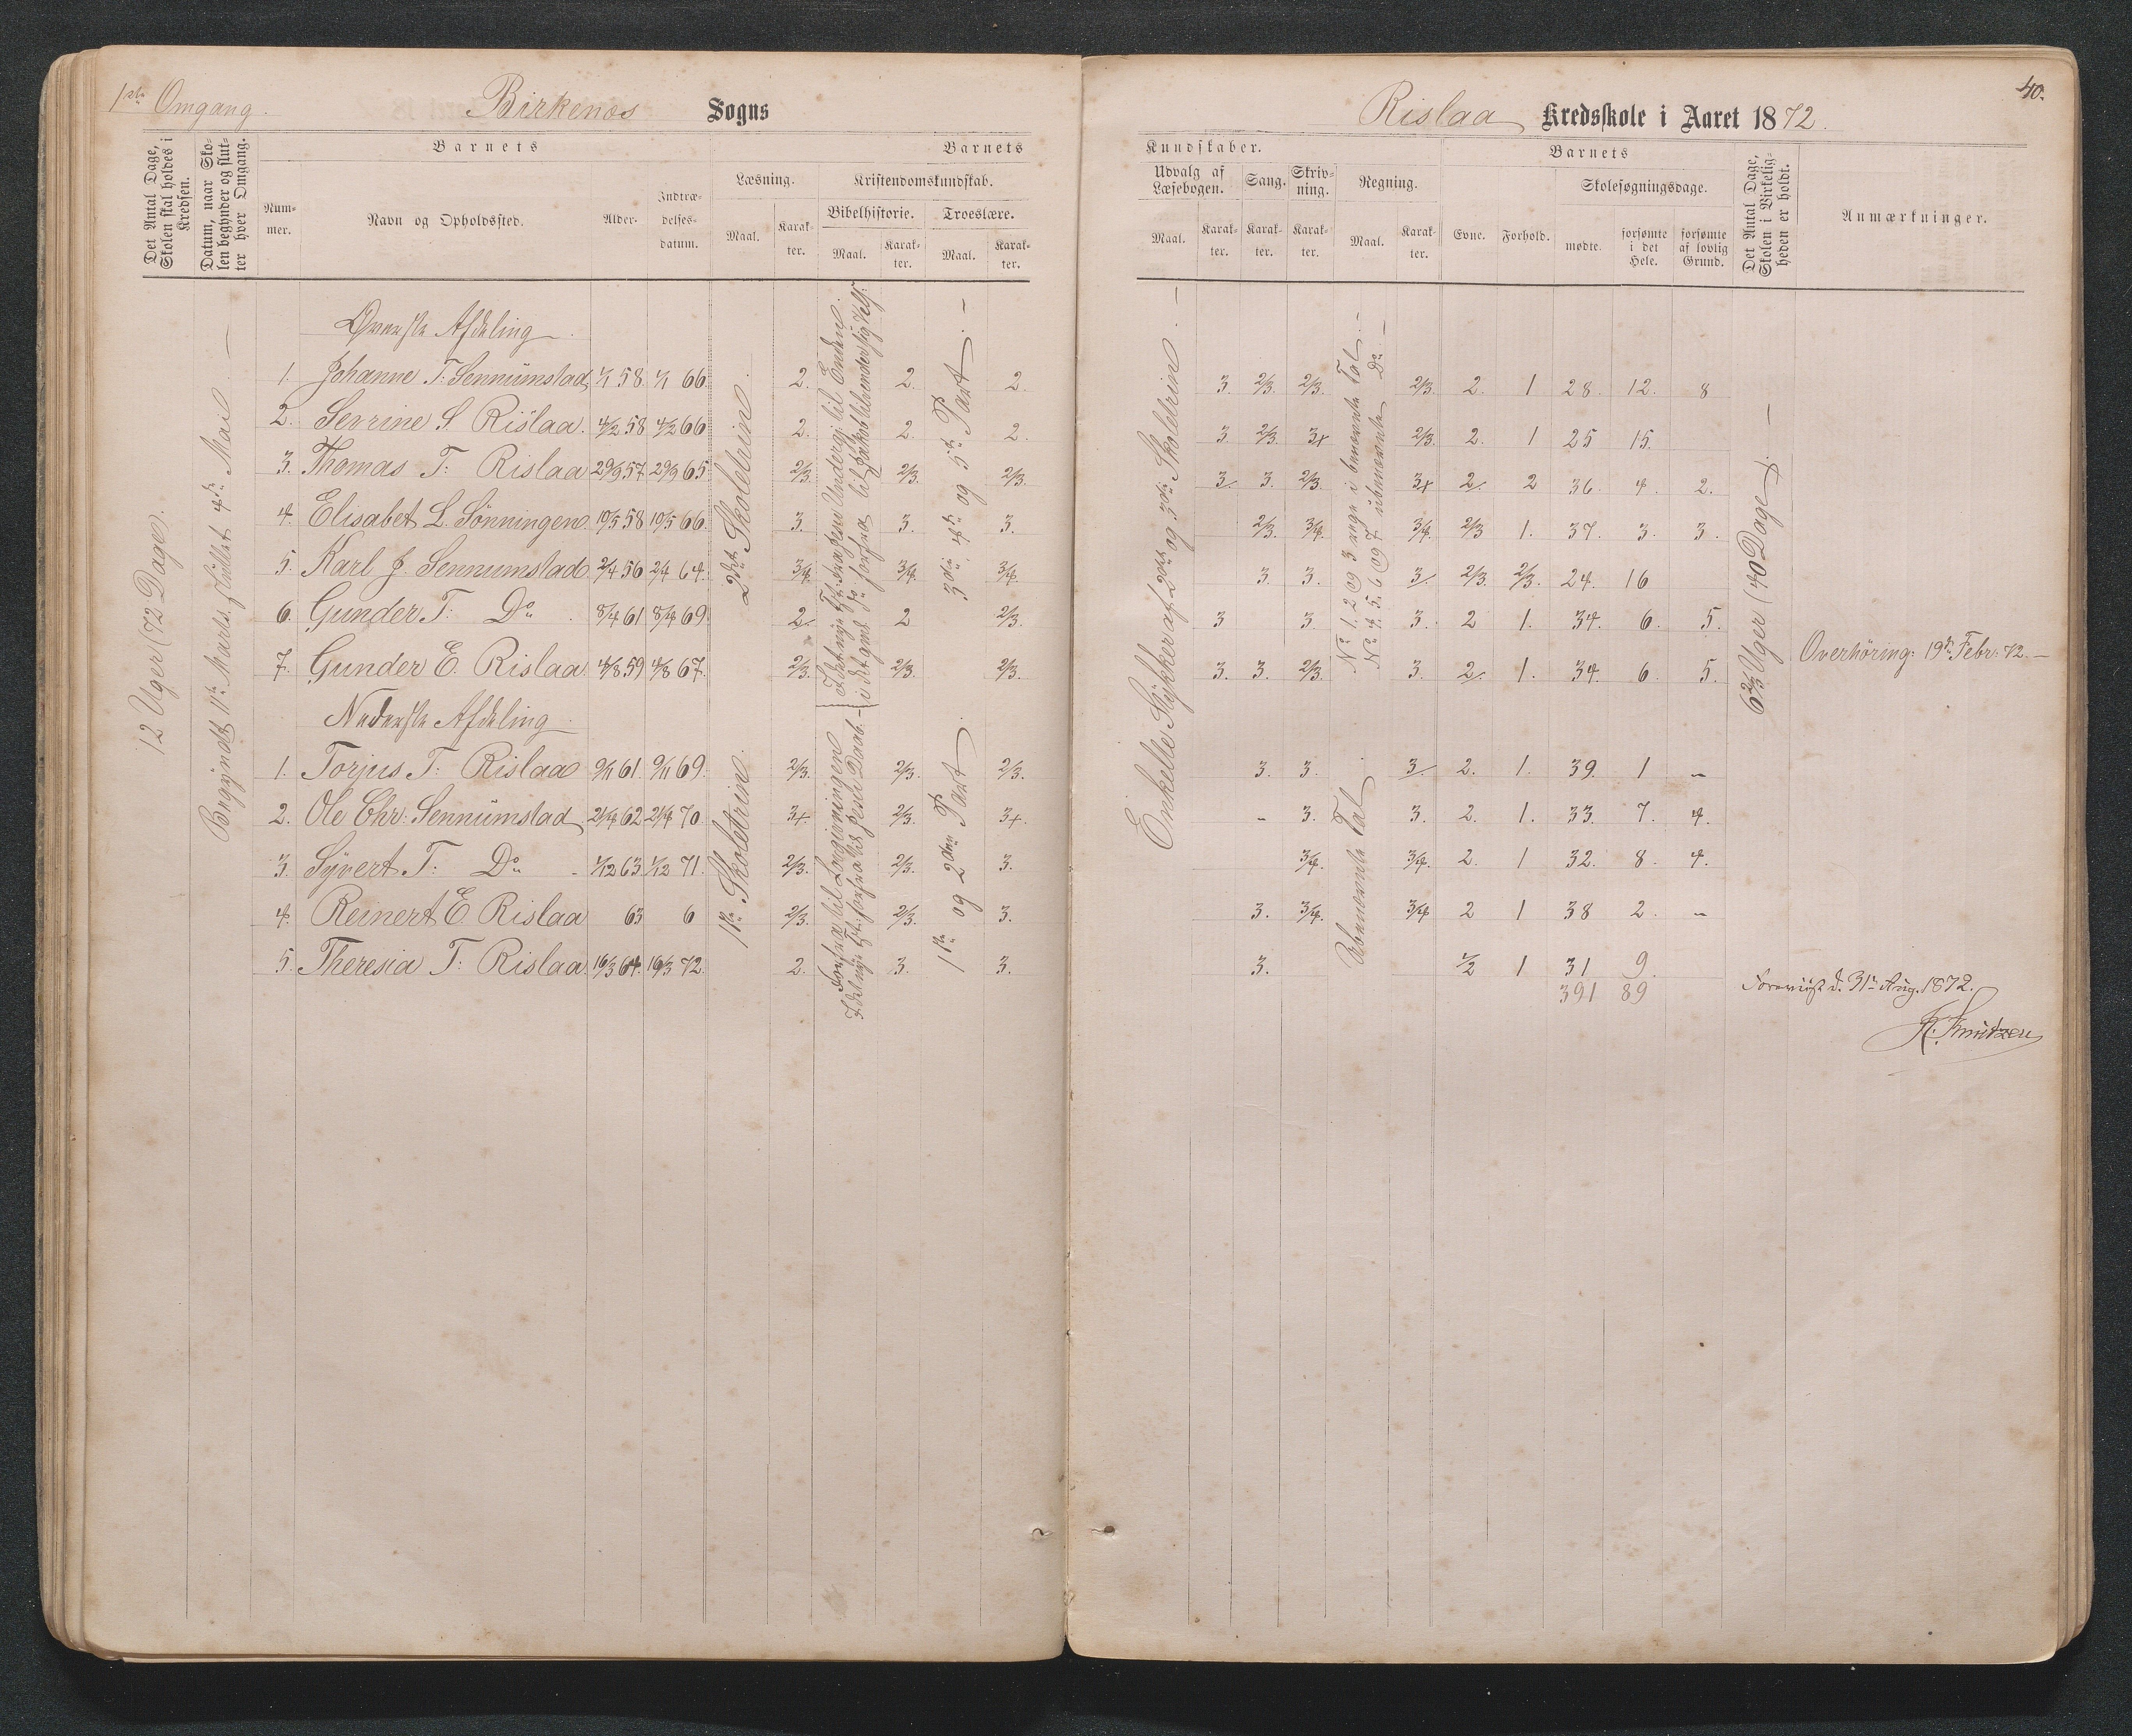 1ste Omgang.
Birkenes Sogns
Det Antal Dage, Skolen skal holdes i Kredsen.
Datum, naar Skolen begynder og slutter hver Omgang.
Barnets
Nummer.
Navn og Opholdssted.
Alder.
Indtrædelsesdatum.
Barnets
Læsning.
Maal.
Karakter.
Kristendomskundskab.
Bibelhistorie.
Maal.
Karakter.
Troeslære.
Maal.
Karakter.
12 Uger (72 Dage).
Begyndt 11te Marts, sluttet 4de Mai. —
Øverste Afdeling
1. Johanne T: Sennumstad 1/1 58. 1/1 66. 2. 2. 2.
2. Serine S Rislaa. 4/2 58 4/2 66 2. 2. 2.
3. Thomas T: Rislaa 29/9 57. 29/9 65. 2/3. 2/3. 2/3.
4. Elisabet L. Sønningen 10/5 58 10/5 66. 3. 3. 3.
5. Karl J. Sennumstad 2/4 56 2/4 64. 3/4. 3/4. 3/4.
6. Gunder T: Do 8/4 61 8/4 69. 2. 2 2/3.
7. Gunder E. Rislaa. 4/8 59 4/8 67. 2/3. 2/3. 2/3.
2det Skoletrin.
3die, 4de og 5te Part. —
Nederste Afdeling
1. Torjus T: Rislaa 9/11 61. 9/11 69. 2/3. 2/3. 2/3.
2. Ole Chr: Sennumstad 21/4 62 21/4 70. 3+. 2/3. 3+.
3. Syvert T: Do - 1/12 63 1/12 71. 2/3. 2/3. 3.
4. Reinert E Rislaa 63 6 2/3. 2/3. 3.
5. Theresia T: Rislaa 16/3 64. 16/3 72. 2. 3. 3.
1ste Skoletrin.
1ste og 2den Part.
40.
Rislaa Kredsskole i Aaret 1872.
Kundskaber.
Udvalg af Læsebogen.
Maal.
Karakter.
Sang.
Karakter.
Skrivning.
Karakter.
Regning.
Maal.
Karakter.
Barnets
Evne.
Forhold.
Skolesøgningsdage.
mødte.
forsømte i det Hele.
forsømte af lovlig Grund.
Det Antal Dage, Skolen i Virkeligheden er holdt.
Anmærkninger.
Enkelte Stykker af 2det og 3die Skoletrin. —
No 1. 2 og 3 regn i benævnte Tal. —
No 4. 5. 6 og 7 ubenævnte Do. —
3. 2/3. 2/3. 2/3. 2. 1 28. 12. 8
3. 2/3. 3+ 2/3. 2. 1 25 15.
3. 3. 2/3. 3+ 2. 2 36. 4. 2.
2/3. 3/4. 3/4. 2/3 1. 37. 3. 3.
3. 3. 3. 2/3. 2/3. 24. 16
3 3. 3. 2 1. 34. 6. 5.
3. 3. 2/3. 3. 2. 1. 34. 6. 5.
6 2/3 Uger (40 Dage). —
Overhøring: 19de Febr: 72. —
Ubenævnte Tal
3. 3. 3. 2. 1. 39. 1 -
- 3. 3. 2. 1. 33. 7. 4.
3/4. 3/4. 2. 1 32. 8. 4.
3. 3/4. 3/4 2 1 38 2. -
3. 1/2 1 31 9.
391 89
Forevist d. 31te Aug. 1872.
K. Knudzen